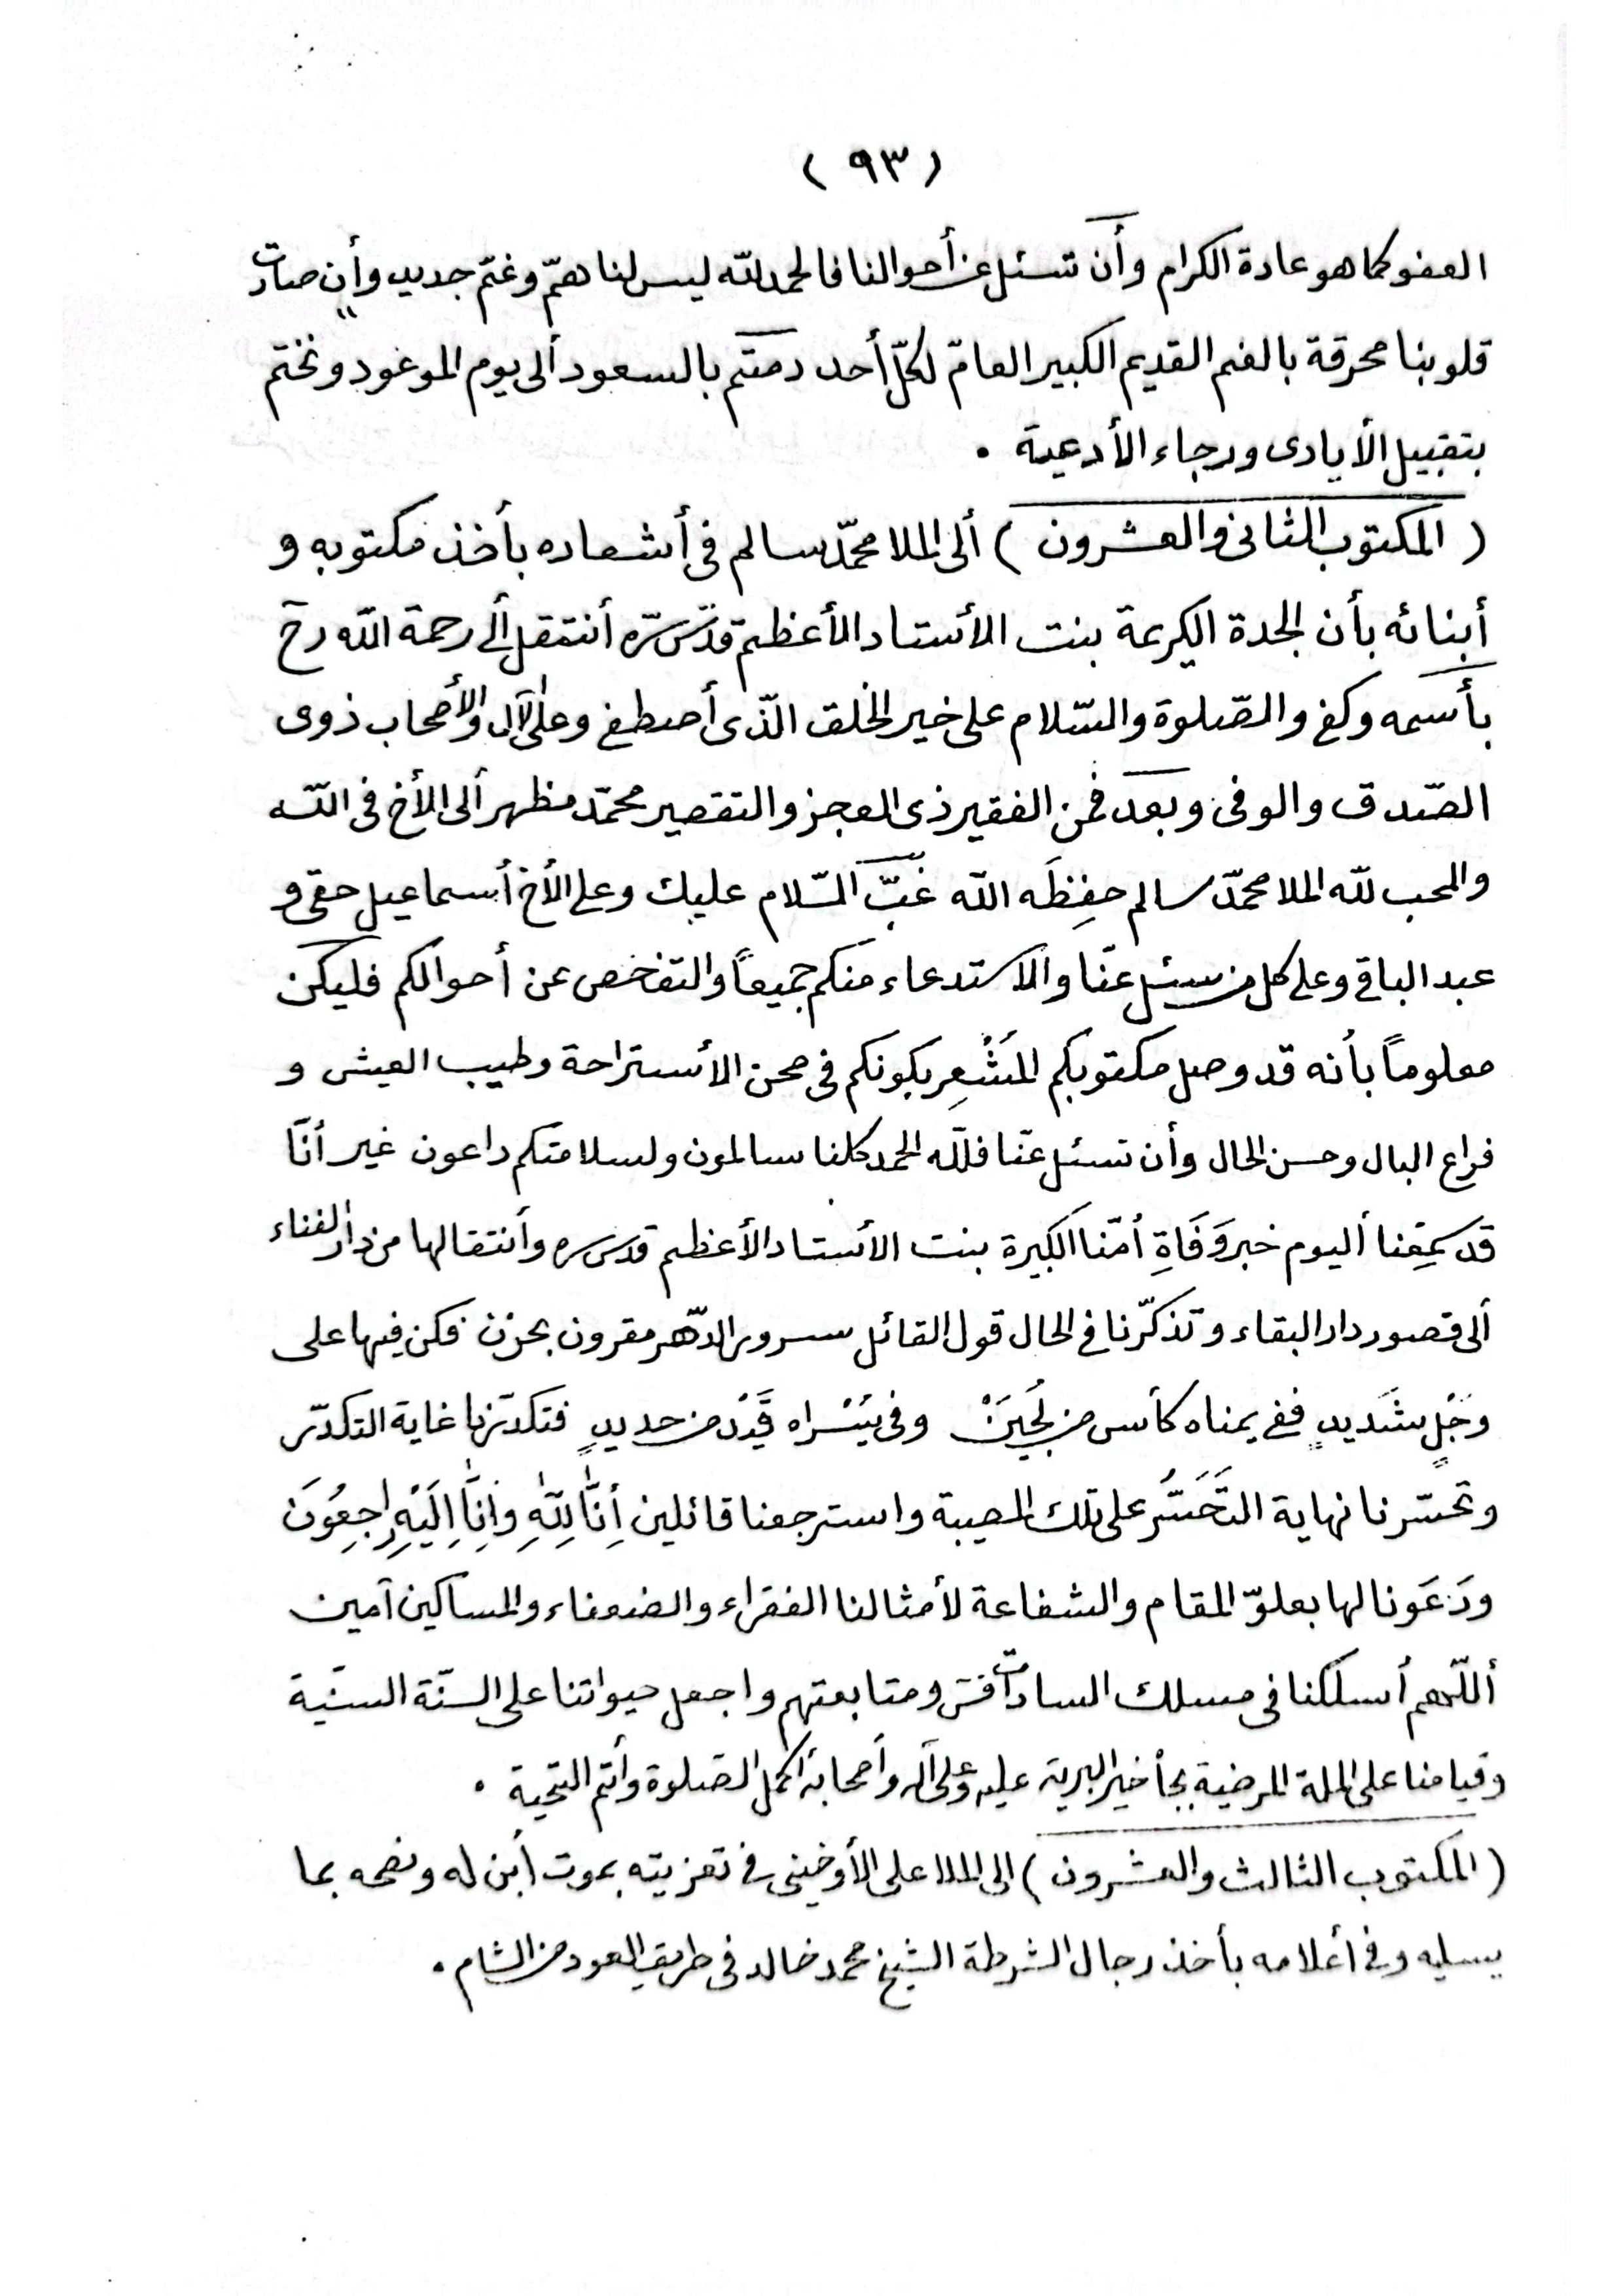 ( ٩٣ )
العفو كما هو عادة الكرام وأن تسئل عن أحوالنا فالحمد لله ليس لنا همّ وغمّ جديد وأن صارت
قلوبنا محرقة بالغم القديم الكبير العامّ لكلّ أحد دمتم بالسعود ألى يوم الموعود ونختم
بتقبيل الأيادى ورجاء الأدعية .
( المكتوب الثانى والعشرون ) ألى الملا محمّد سالم فى أشعاره بأخذ مكتوبه و
أبنائه بأن الجدة الكريمة بنت الأستاد الأعظم قدّس سّره أنتقل ألى رحمة الله رح
بأسمه وكفى والصّلوة والسّلام على خير الخلق الّذى أصطفى وعلى الآل والأصحاب ذوى
الصّدق والوفى وبعد فمن الفقير ذى العجز والتقصير محمّد مظهر ألى الأخ فى اللّه
والمحب للّه الملا محمّد سالم حفِظَه الله غبّ السّلام عليك وعلى الأخ أسماعيل حقى و
عبد الباقى وعلى كل من سئل عنّا والأستدعاء منكم جميعاً والتفخص عن أحوالكم فليكن
معلوماً بأنه قد وصل مكتوبكم المُشْعِر بكونكم فى صحن الأستراحة وطيب العيش و
فراع البال وحسن الحال وأن تسئل عنّا فللّه الحمد كلنا سالمون ولسلامتكم داعون غير أنّا
قد سمِعْنا أليوم خبر وَفَاةِ أمّنا الكبيرة بنت الأستاد الأعظم قدس سره وأنتقالها من دار الفناء
ألى قصور دار البقاء وتذكّرنا فى الحال قول القائل سرور الدّهر مقرون بحزن فكن فيها على
وَجَلٍ شَديدٍ ففى يمناه كأس من لُجَينْ وفى يُسْراه قَيْد من حديدٍ فتكدّرنا غاية التكدّر
وتحسّرنا نهاية التَحَسُّر على تلك المصيبة واسترجعنا قائلين أِنَّا لِلّٰهِ وَاِنَّا اِلَيْهِ رٰاجِعُونَ
ودَعَونا لها بعلوّ المقام والشفاعة لأمثالنا الفقراء والضعفاء والمساكين آمين
أللّهم أسلكنا فى مسلك السادات قس ومتابعتهم واجعل حيواتنا على السنّة السنّية
وقيامنا على الملة المرضية بجاْ خير البرية عليه وعلى آله وأصحابه أكمل الصّلوة وأتم التحية .
( المكتوب الثالث والعشرون ) الى الملا على الأوخينى فى تعزيته بموت أبن له ونصحه بما
يسليه وفى أعلامه بأخذ رجال الشرطة الشيخ محمد خالد فى طريق العود من الشام .